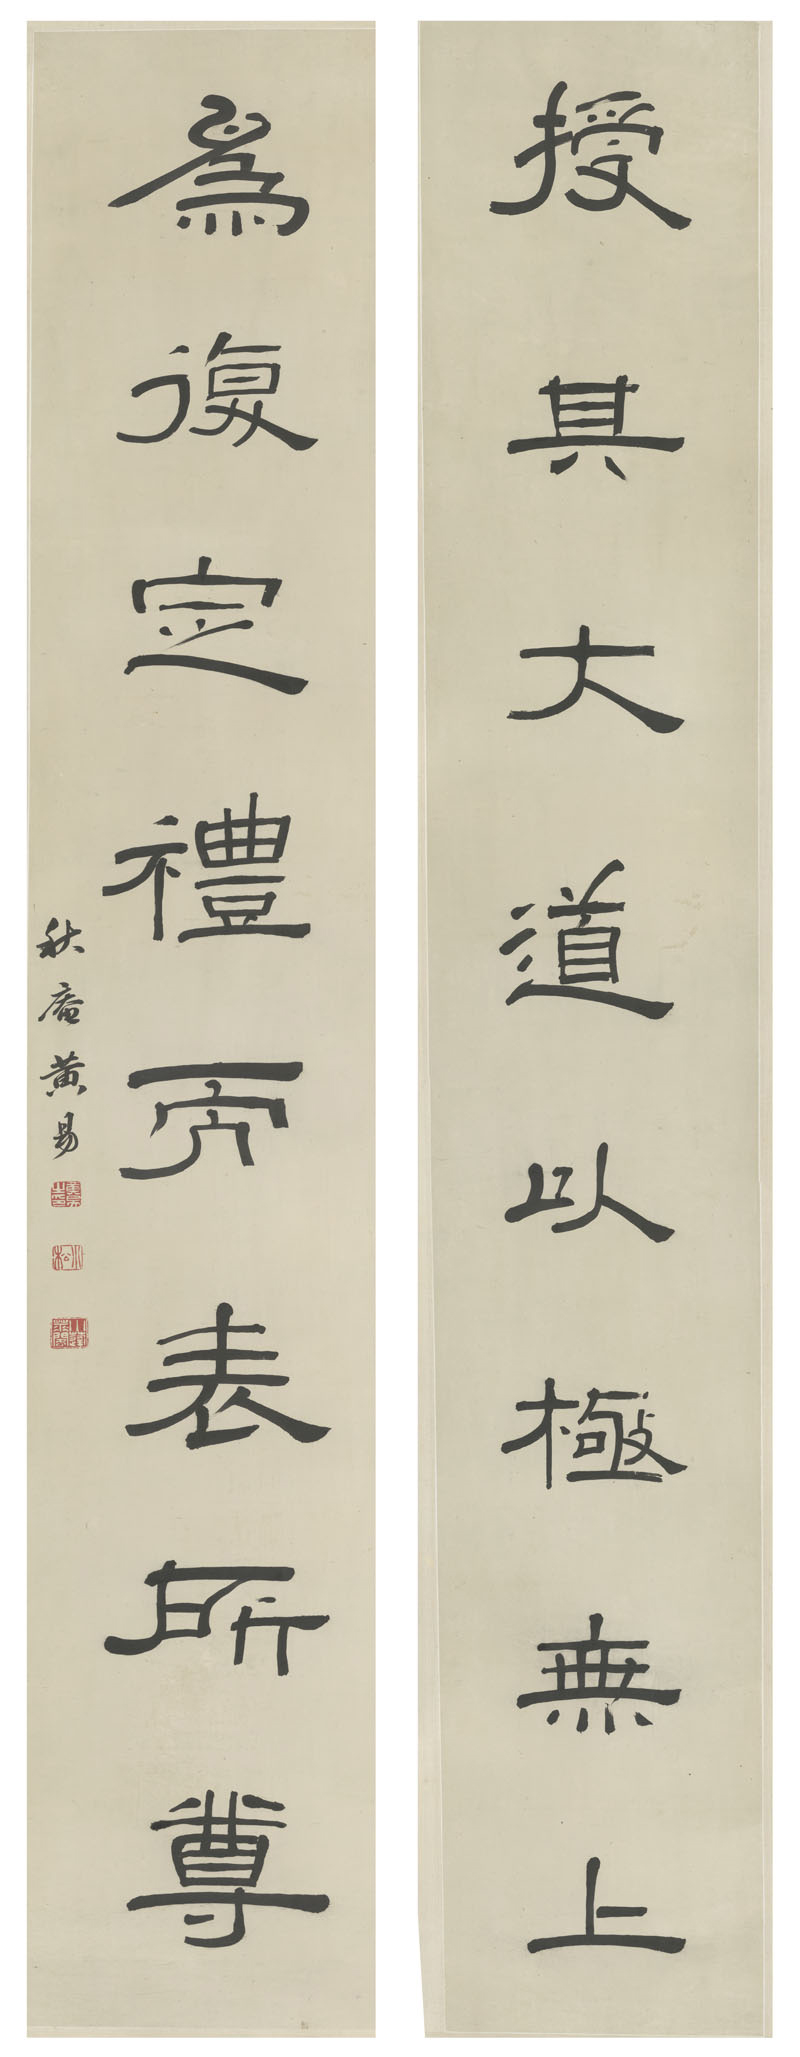 授其大道以極無上
為復定禮而表所尊
秋盦黃易